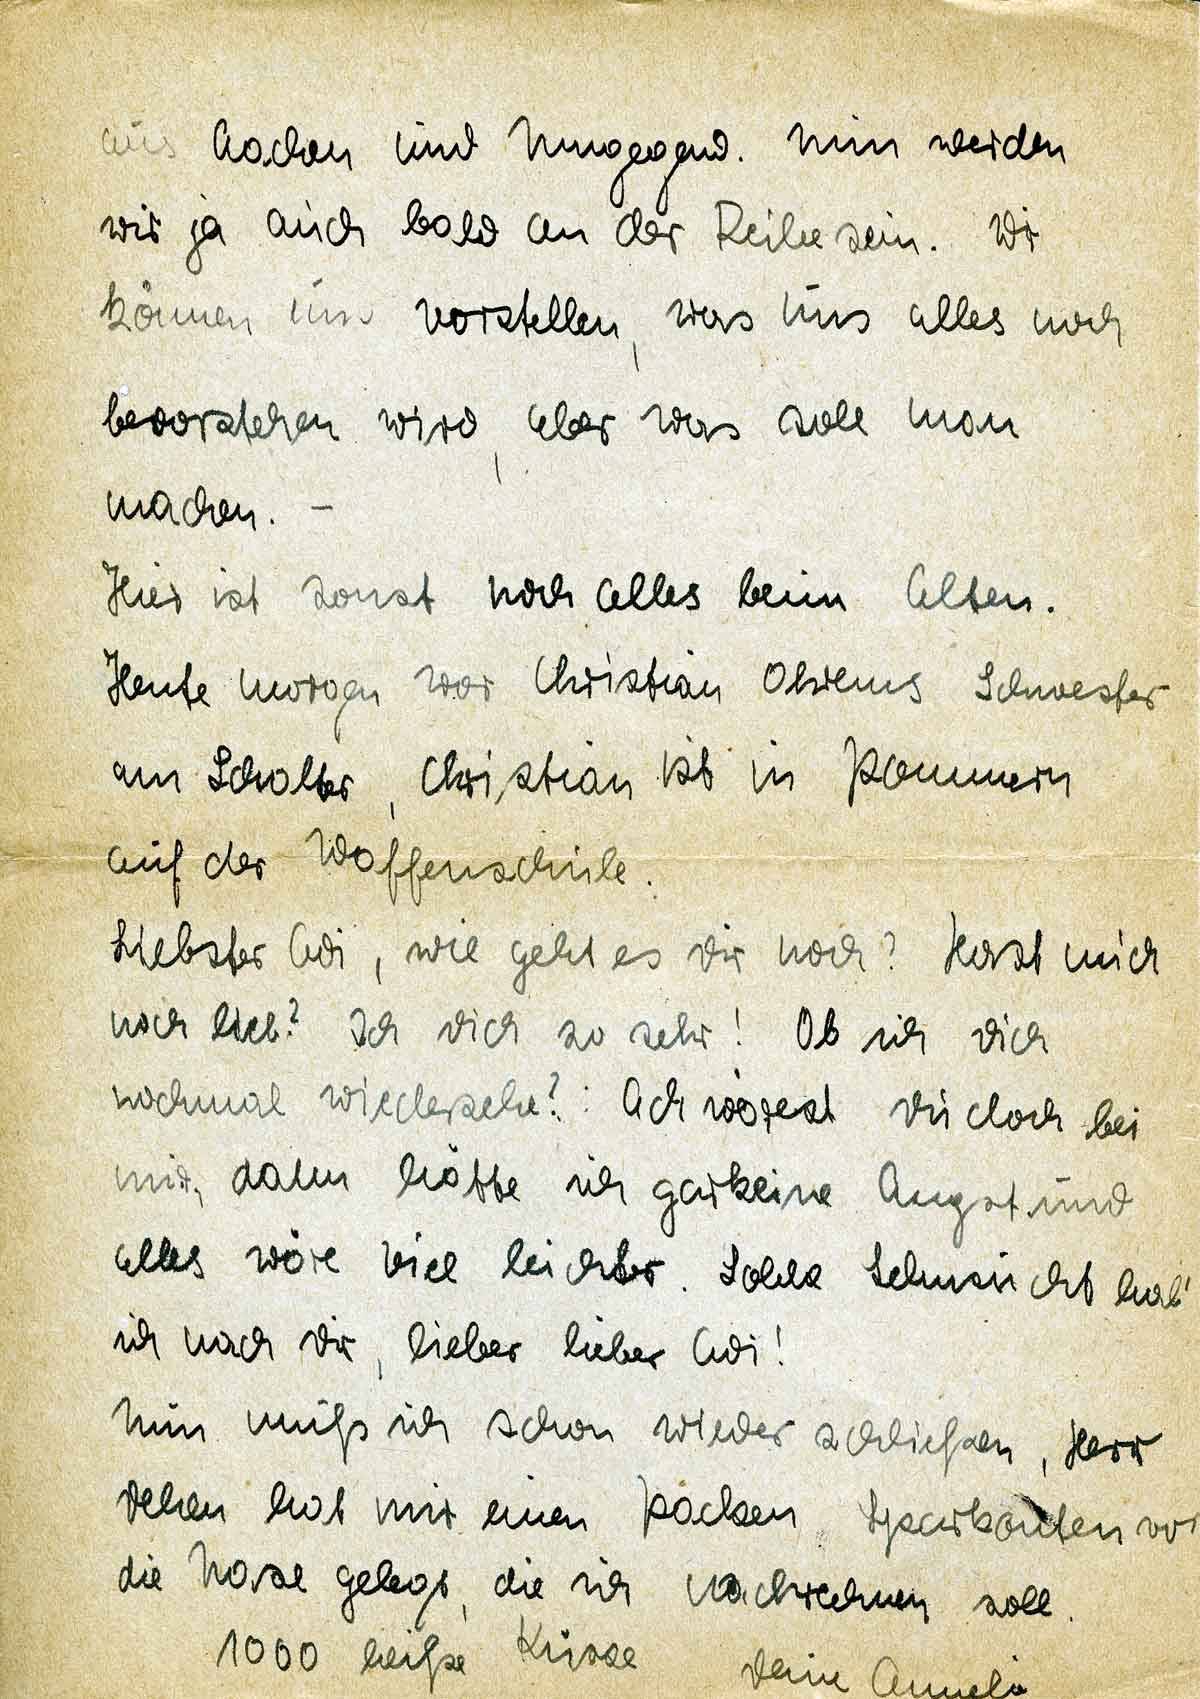 aus Aachen und Umgegend. Nun werden
wir ja auch bald an der Reihe sein. Wir
können uns vorstellen, was uns alles noch
bevorstehen wird, aber was soll man
machen. –
Hier ist sonst noch alles beim Alten.
Heute morgen war Christian Ohrems Schwester
am Schalter, Christian ist in Pommern
auf der Waffenschule.
Liebster Adi, wie geht es dir noch? Hast mich
noch lieb? Ich dich so sehr! Ob ich dich
nochmal wiedersehe? Ach wärest du doch bei
mir, dann hätte ich garkeine Angst und
alles wäre viel leichter. Solche Sehnsucht hab'
ich nach dir, lieber lieber Adi!
Nun muß ich schon wieder schließen, Herr
Dehen hat mir einen Packen Sparkonten vor
die Nase gelegt, die ich nachrechnen soll.
1000 heiße Küsse deine Anneli